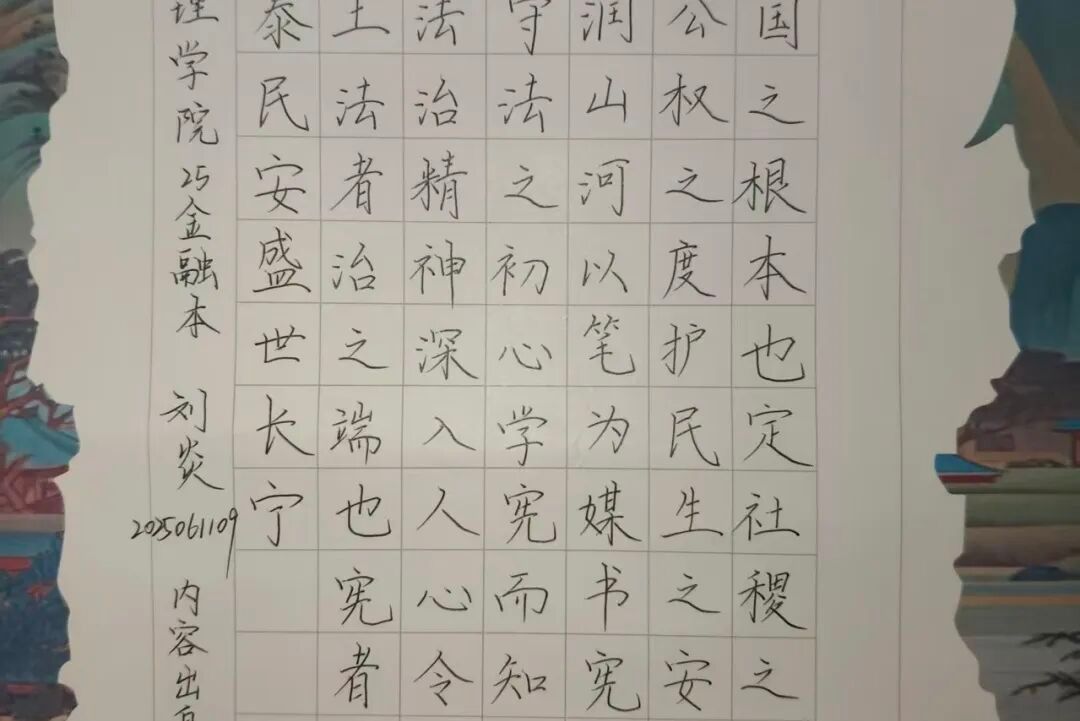 国之根本也定社稷之
公权之度护民生之安
润山河以笔为媒书宪
守法之初心学宪而知
法治精神深入人心令
土法者治之端也宪者
泰民安盛世长宁
理学院 25金融本 刘炎 2025061109 内容出自